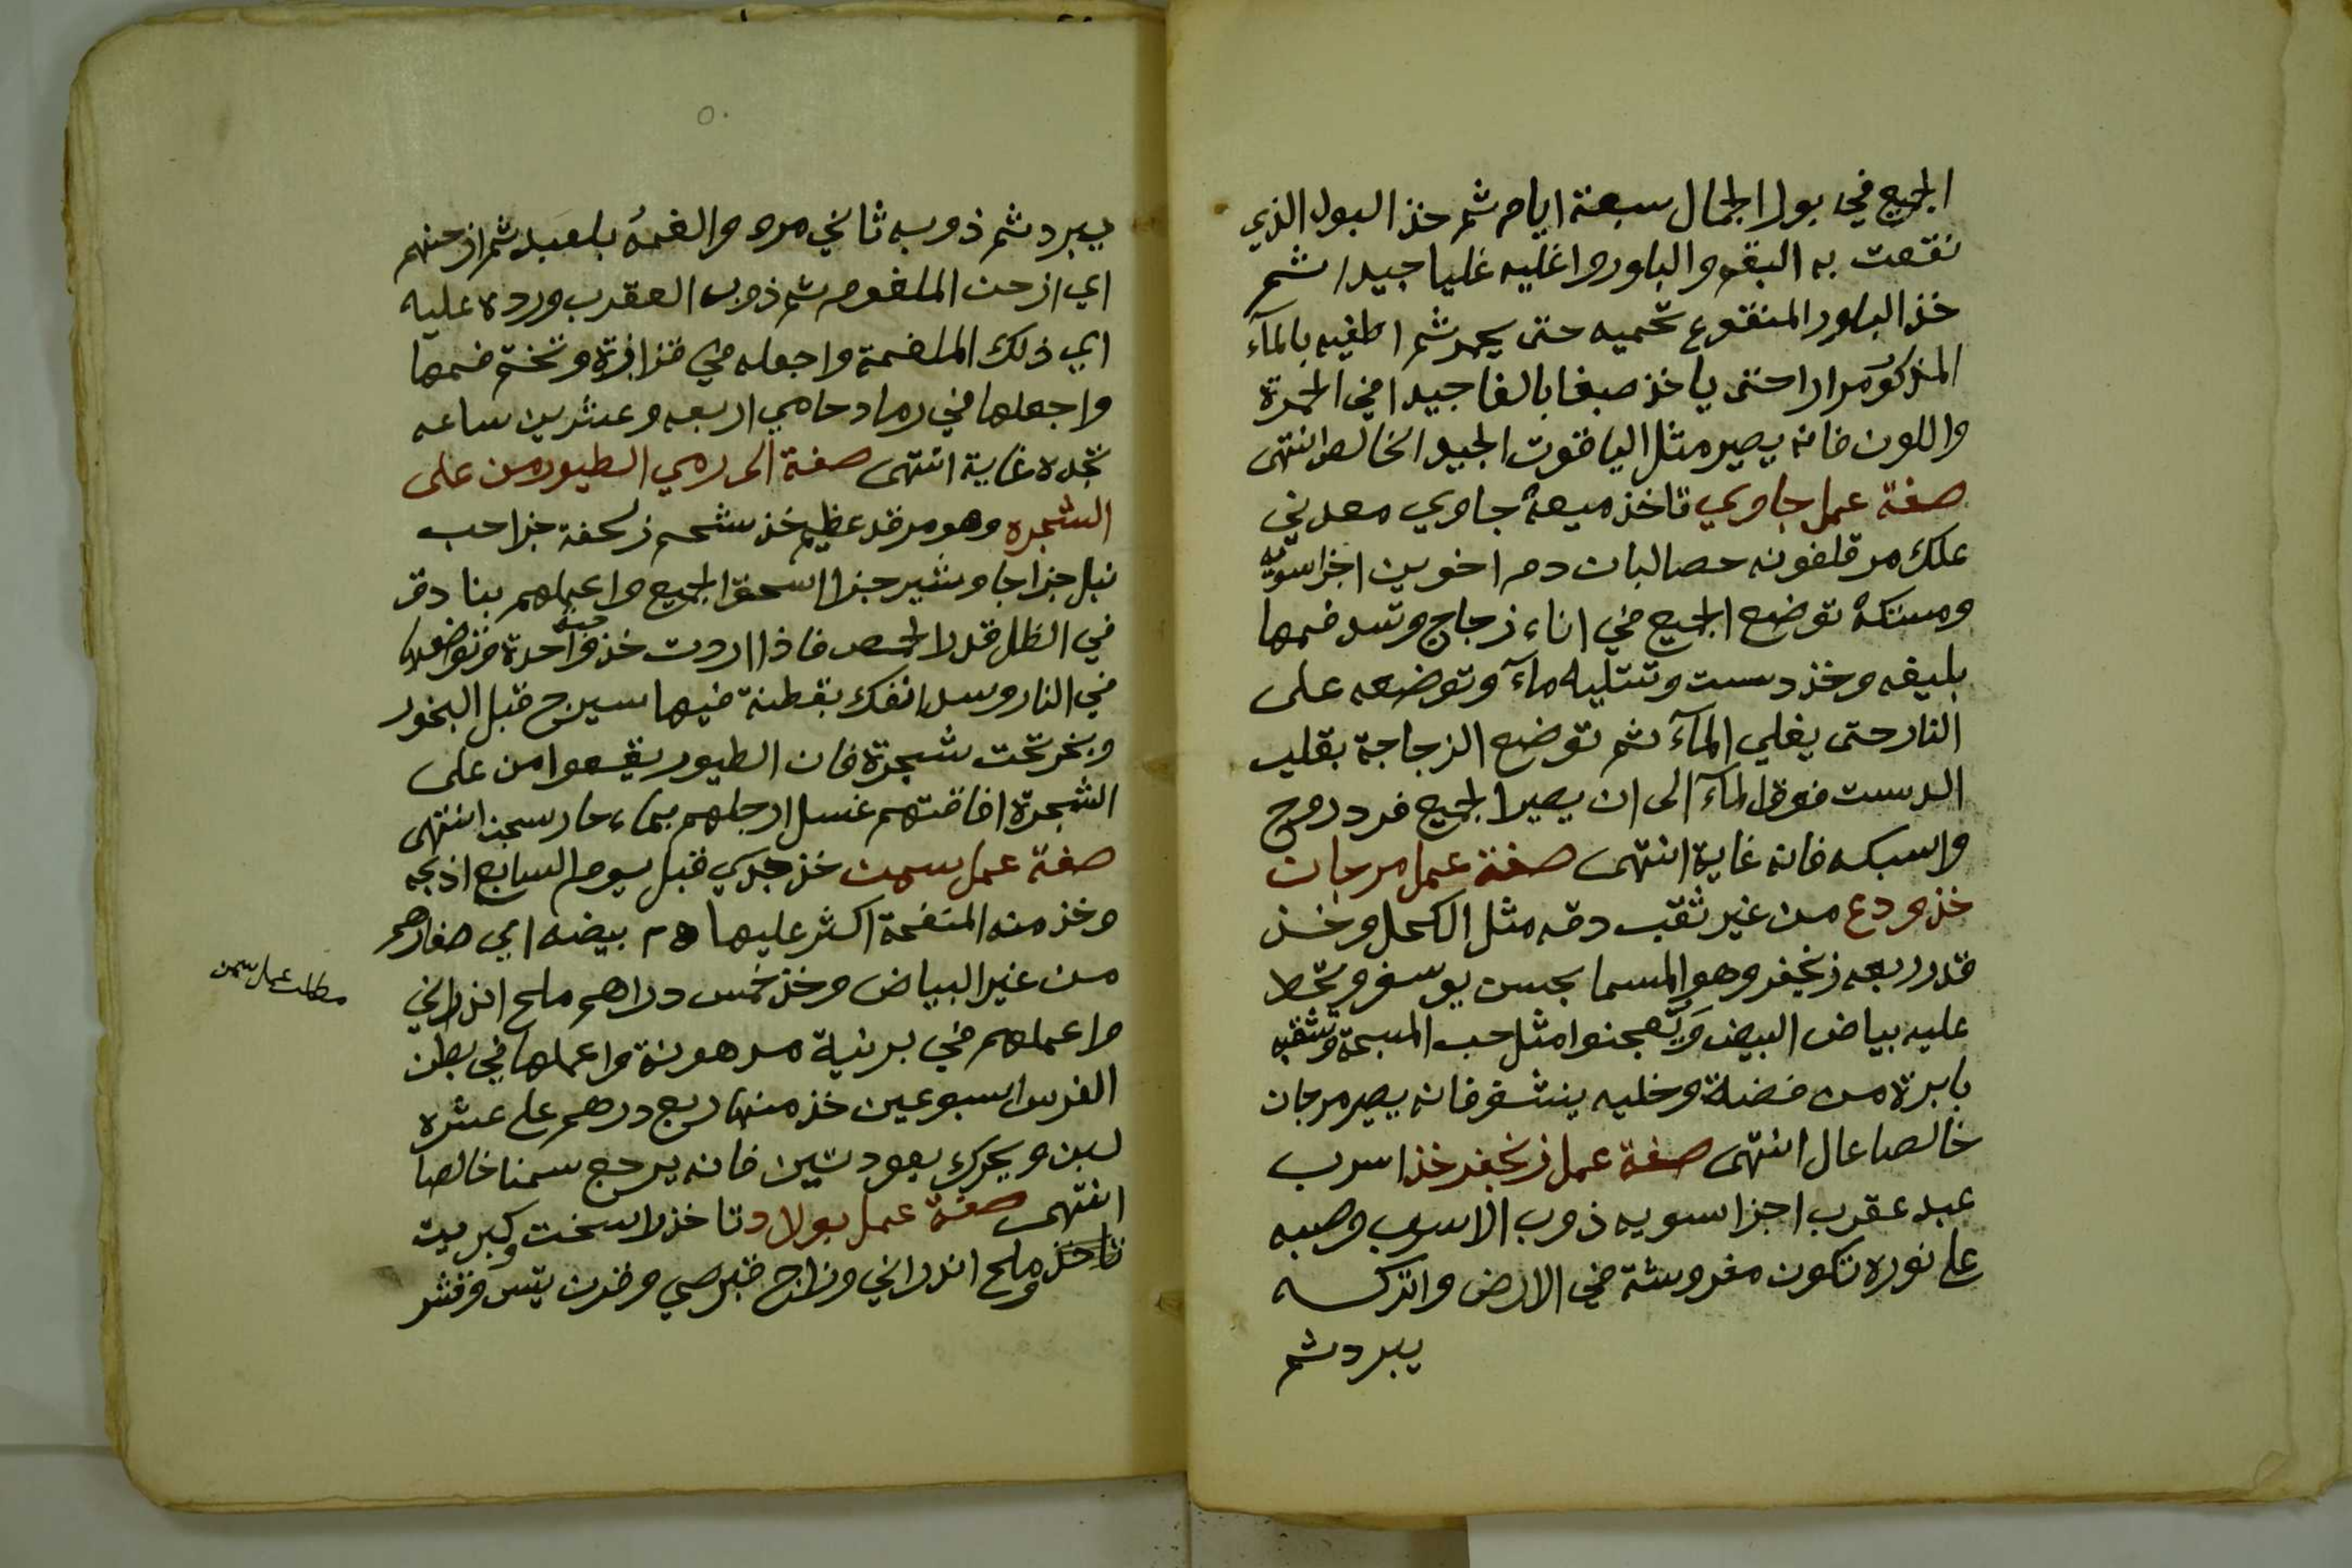 الجميع في بول الجمال سبعة ايام ثم خذ البول الذي
نقعت به البقم والبلور واغليه غليا جيدا ثم
خذ البلور المنقوع تحميه حتى يحمر ثم اطفيه بالمآء
المذكور مرارا حتى ياخذ صبغا بالغا جيدا في الحمرة
واللون فانه يصير مثل الياقوت الجيد الخالص انتهى
صفة عمل جاوي تاخذ ميعة جاوي معدني
علك مر قلفونه حصالبان دم اخوين اجزا سويه
ومستكة توضع الجميع في اناء زجاج وتسد فمها
بليفه وخذ دست وتتليه مآء وتوضعه على
النار حتى يغلي المآء ثم توضع الزجاجة بقلب
الدست فوق المآء الى ان يصير الجميع فرد روح
واسبكه فانه غاية انتهى صفة عمل مرجان
خذ ودع من غير ثقب دقه مثل الكحل وخذ
قدر ربعه زنجفر وهو المسما بجسن يوسفر وتحط
عليه بياض البيض وتعجنوا مثل حب المسبحة وتثقبه
بابرة من فضة وخليه ينشف فانه يصير مرجان
خالصا عال انتهى صفة عمل زنجفر خذ اسرب
عبد عقرب اجزا سويه ذوب الاسرب وصبه
على نوره تكون مفروشة في الارض واتركه
يبرد ثم
٥٠
يبرد ثم ذوبه ثاني مره والغمه بلعبد ثم ازحنهم
اي ازحن الملغوم ثم ذوب العقرب ورده عليه
اي ذلك الملغمة واجعله في قزازة وتختم فمها
واجعلها في رماد حامي اربعه وعشرين ساعه
تجده غاية انتهى صفة الى رمي الطيور من على
الشجره وهو مرقد عظيم خذ شحم زلحفة جزا حب
نيل جزا جاوشير جزا اسحق الجميع واعملهم بنادق
في الظل قدر الحمص فاذا اردت خذ حبة واحدة وتوضعها
في النار وسد انفك بقطنة فيها سيرج قبل البخور
وبخر تحت شجرة فان الطيور يقعوا من على
الشجرة افاقتهم غسل ارجلهم بماء حار سخن انتهى
صفة عمل سمن خذ جدي قبل يوم السابع اذبحه
وخذ منه المنفحة اكثر عليها ٥م بيضه اي صفارهم
من غير البياض وخذ خمس دراهم ملح اندراني
واعملهم في برنية مدهونة واعملها في بطن
الفرس اسبوعين خذ منها ربع درهم على عشره
لبن ويحرك بعود تين فانه يرجع سمنا خالصا
انتهى صفة عمل بولاد تاخذ لاسخت وكبريت
تاخذ وملح اندراني وزاج قبرصي وقرن تيس وقشر
مطلب عمل سمن